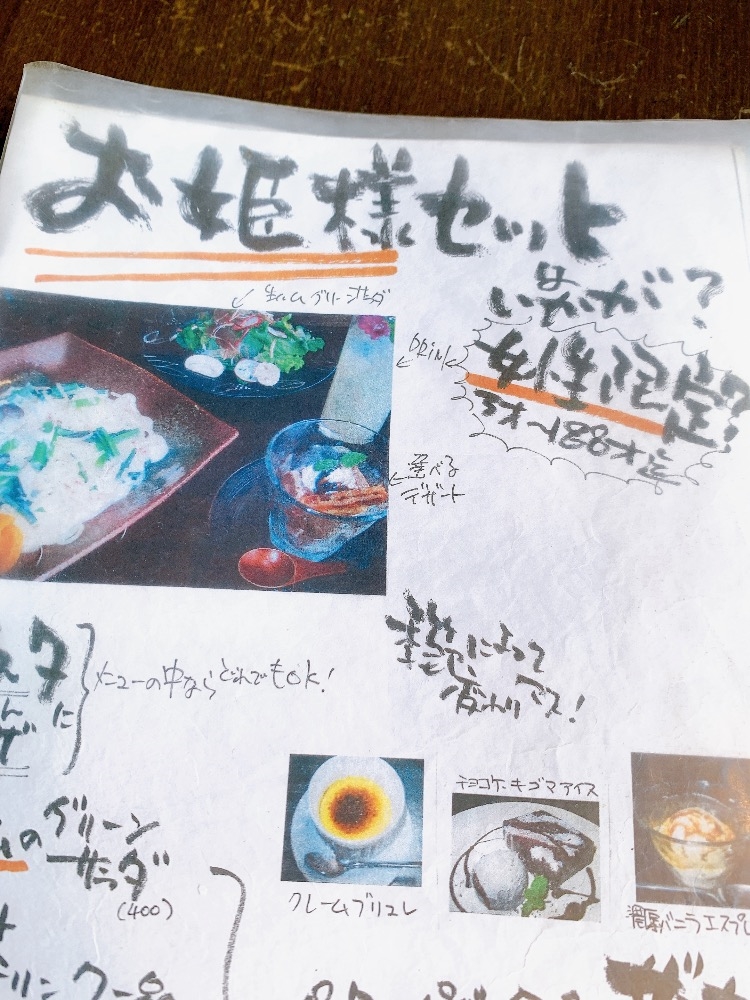 お姫様セット
いかが?
女性限定?
3才~188才迄
生ハムグリーンサラダ
DRINK
選べる
デザート
季節によって
変わりマス!
メニューの中ならどれでもOK!
のグリーン
サラダ
(400)
チョコケーキゴマアイス
クレームブリュレ
濃厚バニラエスプレ